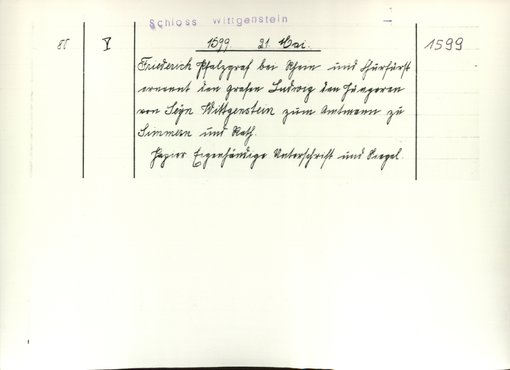 Schloss Wittgenstein
80 V 1599. 21. Mai. 1599
Friederich Pfalzgraf bei Rhein und Churfürst
ernennt den Grafen Ludwig den Jüngeren
von Sayn Wittgenstein zum Amtmann zu
Simmern und Rath.
Papier Eigenhändige Unterschrift und Siegel.